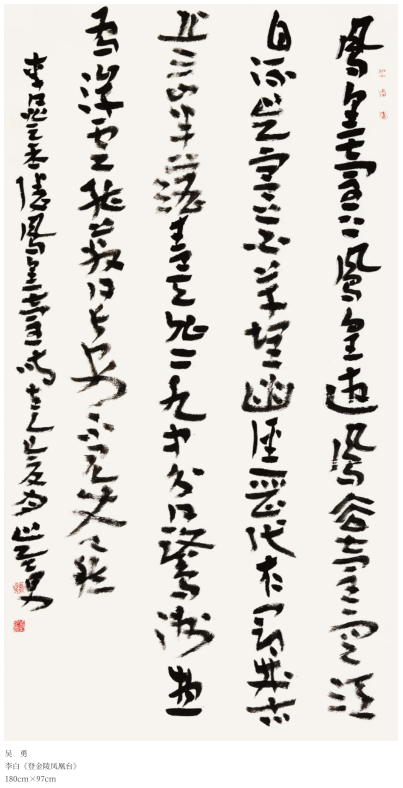 鳳皇臺上鳳皇遊鳳去臺空江
自流吳宮花草埋幽徑晉代衣冠成古
丘三山半落青天外二水中分白鷺洲揔
為浮雲能蔽日長安不見使人愁
李白登金陵鳳皇臺
吴 勇
李白《登金陵凤凰台》
180cm×97cm